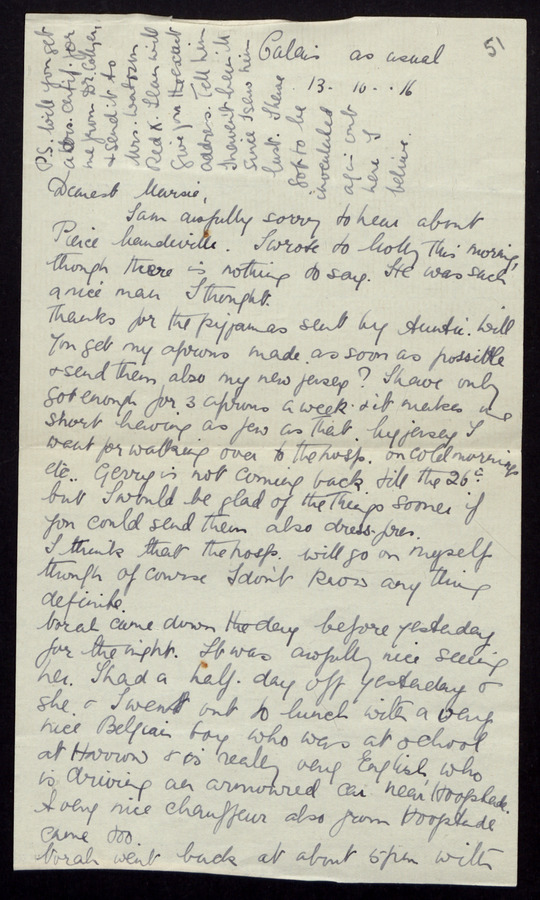 51
Calais as usual
13 . 10 . . 16
P.S. Will you get
a certif. for
me from Dr
& send it to
Mrs. Watson
Red X. Jean will
give you the exact
address. Tell him
I haven't been ill
since I saw him
last. I have
got to be
inoculated
again out
here I
believe.
Dearest Marsie,
I am awfully sorry to hear about
Pierce Mandeville. I wrote to Molly this morning,
though there is nothing to say. He was such
a nice man I thought.
Thanks for the pyjamas sent by Auntie. Will
you get my aprons made as soon as possible
& send them also my new jersey? I have only
got enough for 3 aprons a week & it makes me
short having as few as that. My jersey I
want for walking over to the hosp. on cold mornings
etc.. Gerry is not coming back till the 26th
but I would be glad of the things sooner if
you could send them also dress-pres.
I think that the hosp. will go on myself
though of course I don't know any thing
definite.
Norah came down the day before yesterday
for the night. It was awfully nice seeing
her. I had a half-day off yesterday &
she & I went out to lunch with a very
nice Belgian boy who was at school
at Harrow & is really very English, who
is driving an armoured car near Hoogstade.
A very nice chauffeur also from Hoogstade
came too.
Norah went back at about 5 pm with